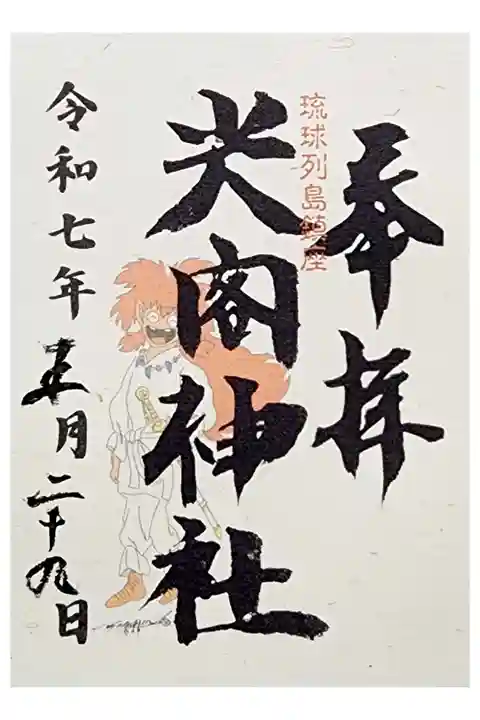 奉拝
琉球列島鎮座
尖閣神社
令和七年五月二十九日